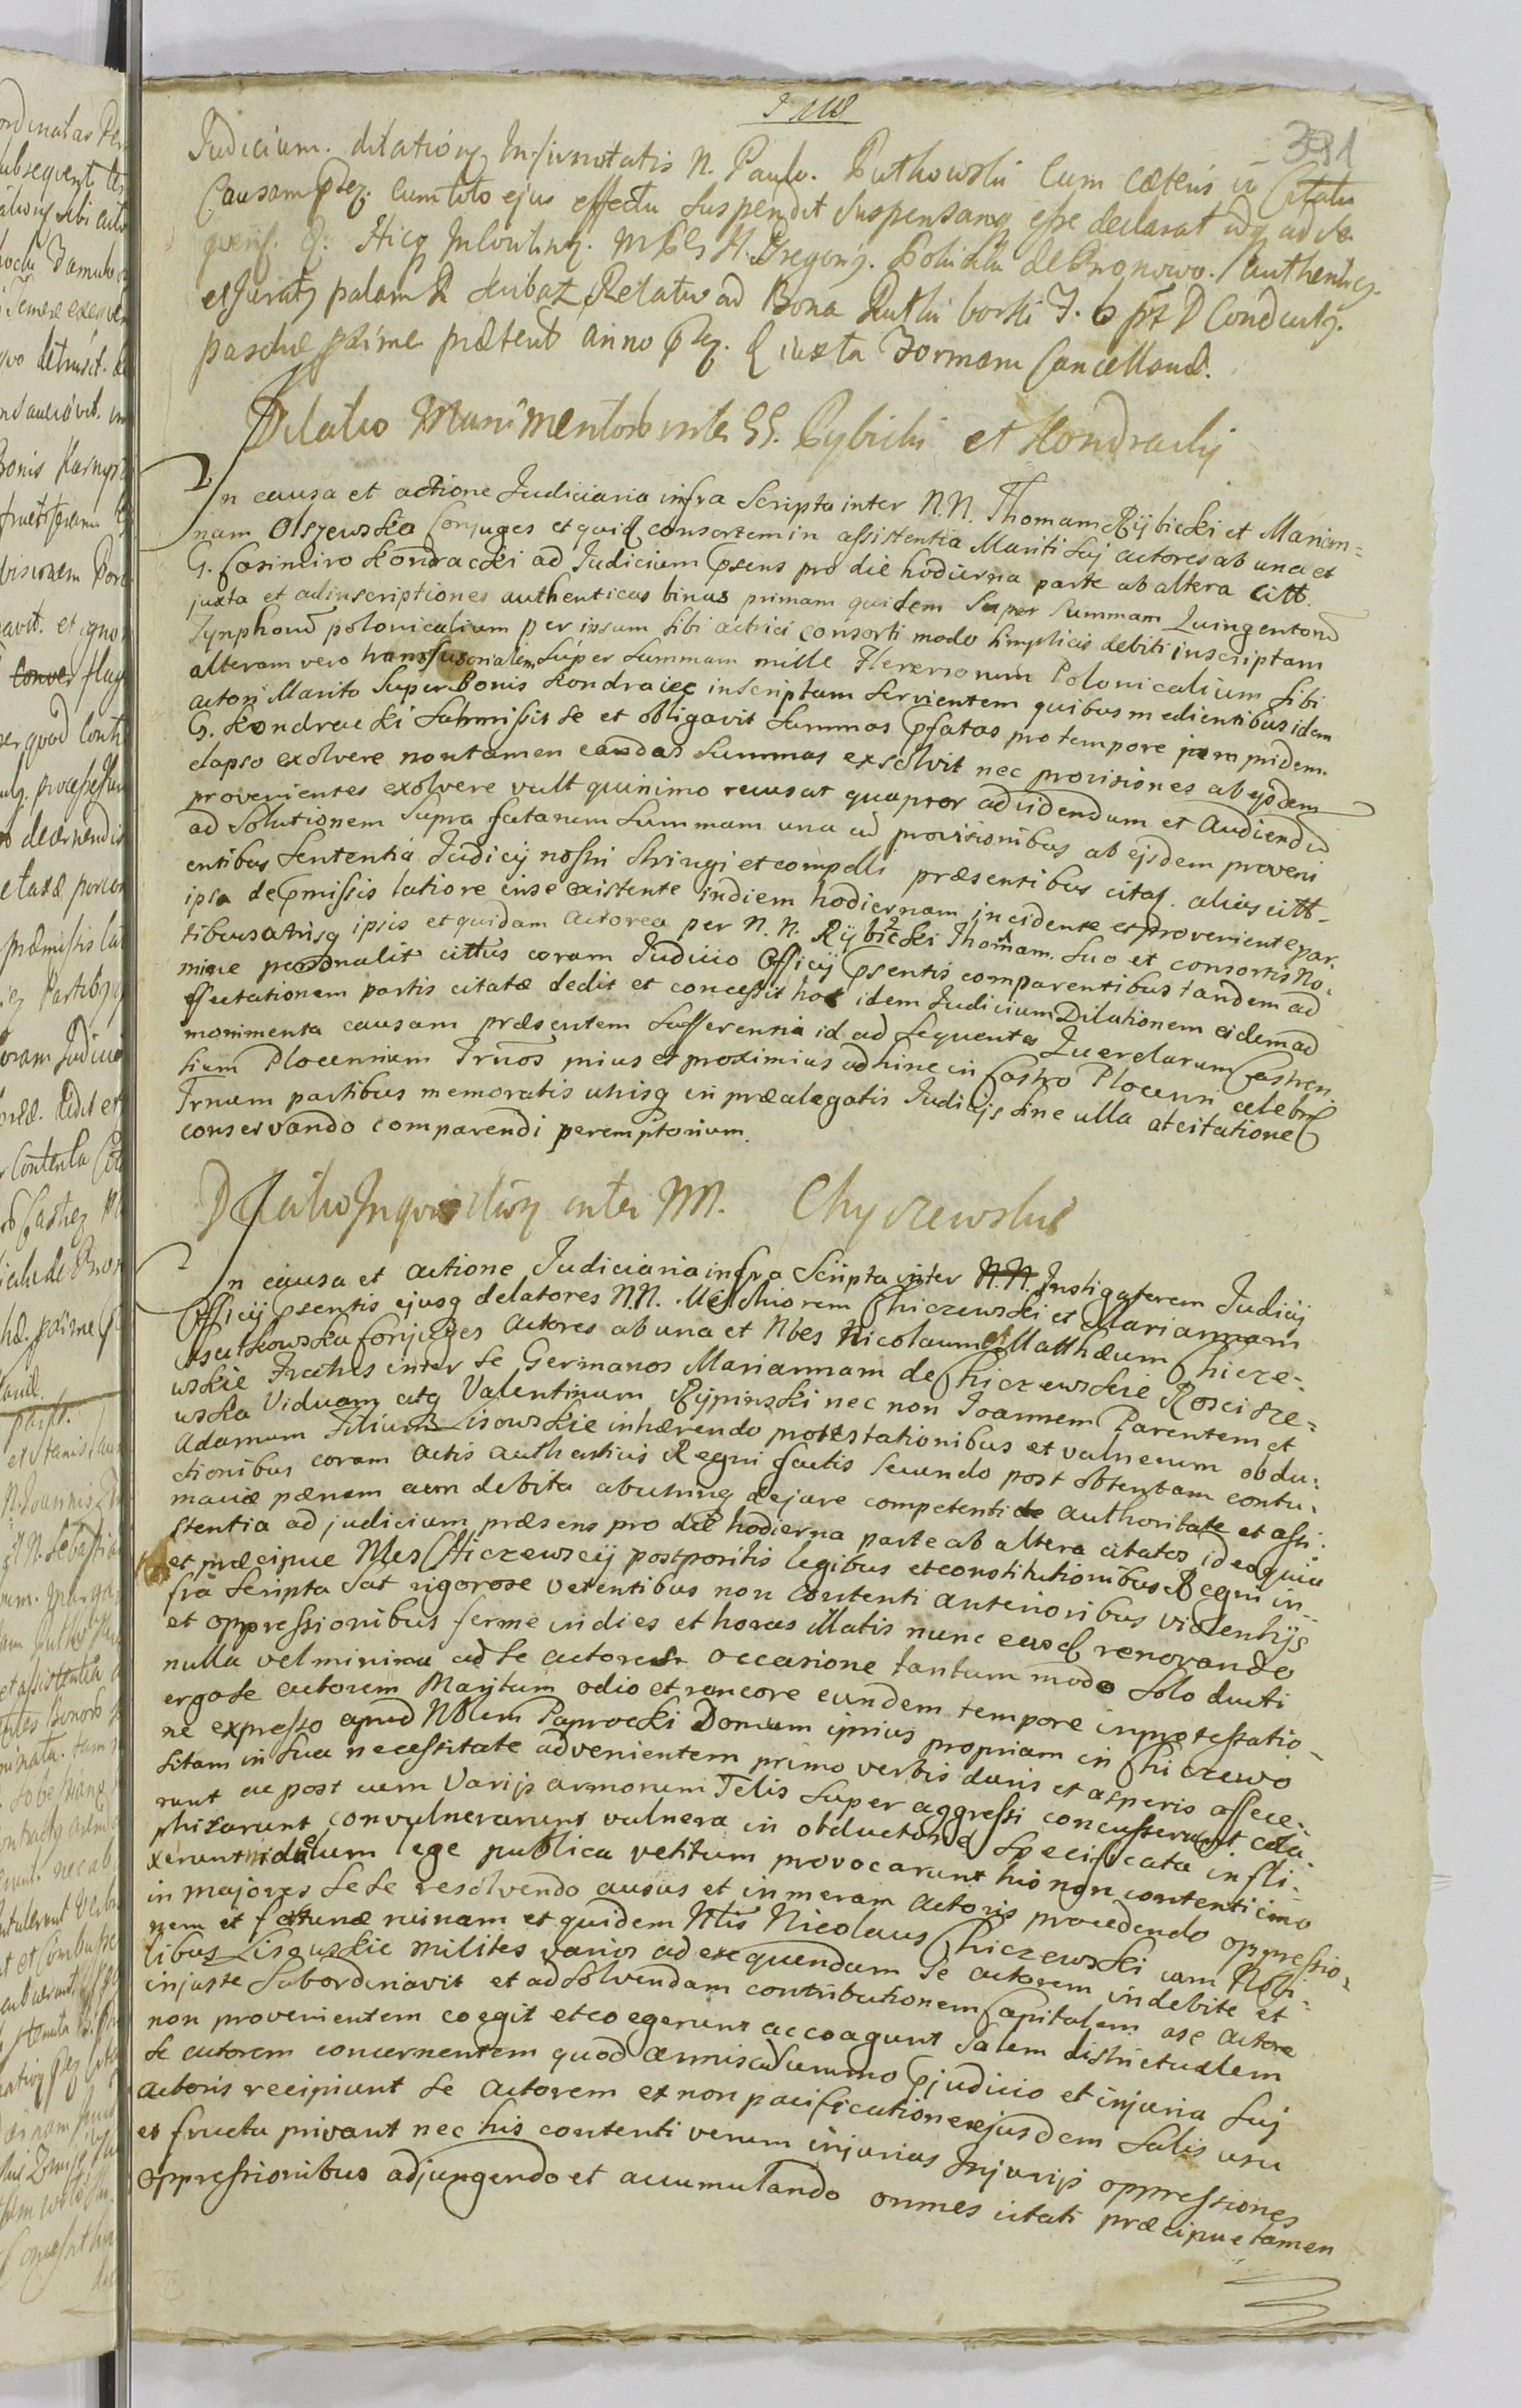 381
Judicium. dilationis Infirmitatis N. Paulo. Rutkowski Cum cæteris in Citatu
Causam cum toto ejus effectu suspendit suspensamq esse declarat idq ad se
Bolicki de Bronowo. authenticq.
et Juratq palam Relatus ad Bona J. 6 Conductq.
paschæ prime præterit anno iuxta Formam Cancelland.
Dilatio Munimentorum inter GG. Rybicki et Kondracky
In causa et actione Judiciaria infra Scripta inter N.N. Thomam Rÿbicki et Marian=
nam Olszewska Conjuges et quid consortem in assistentia Mariti sui actores ab una et
G. Casimiro Kondracki ad Judicium psens pro die hodierna parte ab altera citt.
juxta et ad inscriptiones authenticas binas primam quidem super summam Quingentord
Tynphord polonicalium per ipsum sibi actrici consorti modo simplicis debiti inscriptam
alteram vero transfusorialem super summam mille Flerenorum Polonicalium sibi
actori Marito super Bonis Kondraiec inscriptam servientem quibus medientibus idem
G. Kondracki submissit se et obligavit summas pfatas pro tempore jam pridem
elapso exolvere non tamen easdas summas exsolvit nec provisiones ab ejsdem
provenientes exolvere vult quinimo recusat quapror ad videndum et audiendu
ad solutionem supra fatarum summam una cu provisionibus ab ejsdem proveni
entibus sententia Judicij nostri stringi et compelli præsentibus citat. alias citt-
ipsa de pmissis latiore inse existente indiem hodiernam incidente et proveniente par.
tibus utrisq ipsis et quidam actorea per N. N. Rÿbiecki Thomam. suo et consortis No.
mine personalit cittus coram Judicio Officij psentis comparentibus tandem ad
effectationem partis citatæ dedit et concessit hoc idem Judicium Dilationem eidem ad
monimenta causam præsentem sufferentia id ad sequentes Querelarum Castren
sium Plocensium Trnos prius et proximius adhinc in Castro Plocenn celebrd
Trnum partibus memoratis utrisq in præalegatis Judicijs sine ulla at citatione
conservando comparendi peremptorium.
Dilatio Inquisitionq inter NN. Chyczewskie
In causa et actione Judiciaria infra Scripta inter N.N. Instigatorem Judicij
Officij psentis ejusq delatores N.N. Melchiorem Chiczewski et Mariannam
Conjuges actores ab una et Nbes Nicolaum et Matthæum Chicze=
wskie Fratres inter se Germanos Mariannam de Chiczewskie Rosciszе=
wska Viduam atq Valentinum Rÿpinski nec non Joannem Parentem et
Adamum Filium Lisowskie inhærendo protestationibus et vulnerum obdu.
ctionibus coram actis authenticis Regni factis secundo post obtentam contu.
maciæ pænam cum debita abutrinq dejure competenti de authoritate et assi.
stentia ad judicium præsens pro die hodierna parte ab altera citatos ideo quia
et præcipue Nles Chiczewscij postpositis legibus et constitutionibus Regni in=
fra scripta sat rigorose vetentibus non contenti anterioribus violentijs
et oppressionibus ferme indies et horas illatis nunc easd renovando
nulla vel minima ad se actorem occasione tantum modo solo ducti
ergo se actorem Maritum odio et rancore eundem tempore inprotestatio-
ne expresso apud Nblem Paprocki Domum ipsius propriam in Chiczewo
sitam in sua necessitate advenientem primo verbis duris et asperis affece.
runt ac post cum Varijs armorum Telis super aggressi concusserunt cola
phisarunt convulnerarunt vulnera in obductone specificata infli.
xerunt lege publica vetitum provocarunt his non contenti imo
in majores sese resolvendo ausus et in meram actoris procedendo oppressio-
nem et fortunæ ruinam et quidem Nlis Nicolaus Chiczewski cum Nobi.
libus Lisowskie milites varios ad exequendum se actorem indebite et
injuste subordinavit et ad solvendam contributionem Capitalem ase actore
non provenientem coegit et coegerunt ac coagunt salem districtualem
se actorem concernentem quod cum summo pjudicio et injuria suj
actoris recipiunt se actorem et non pacificatione ejusdem salis usu
et fructu privant nec his contenti verum injurias Injurijs oppressiones
oppressionibus adjungendo et accumulando omnes citati præcipue tamen